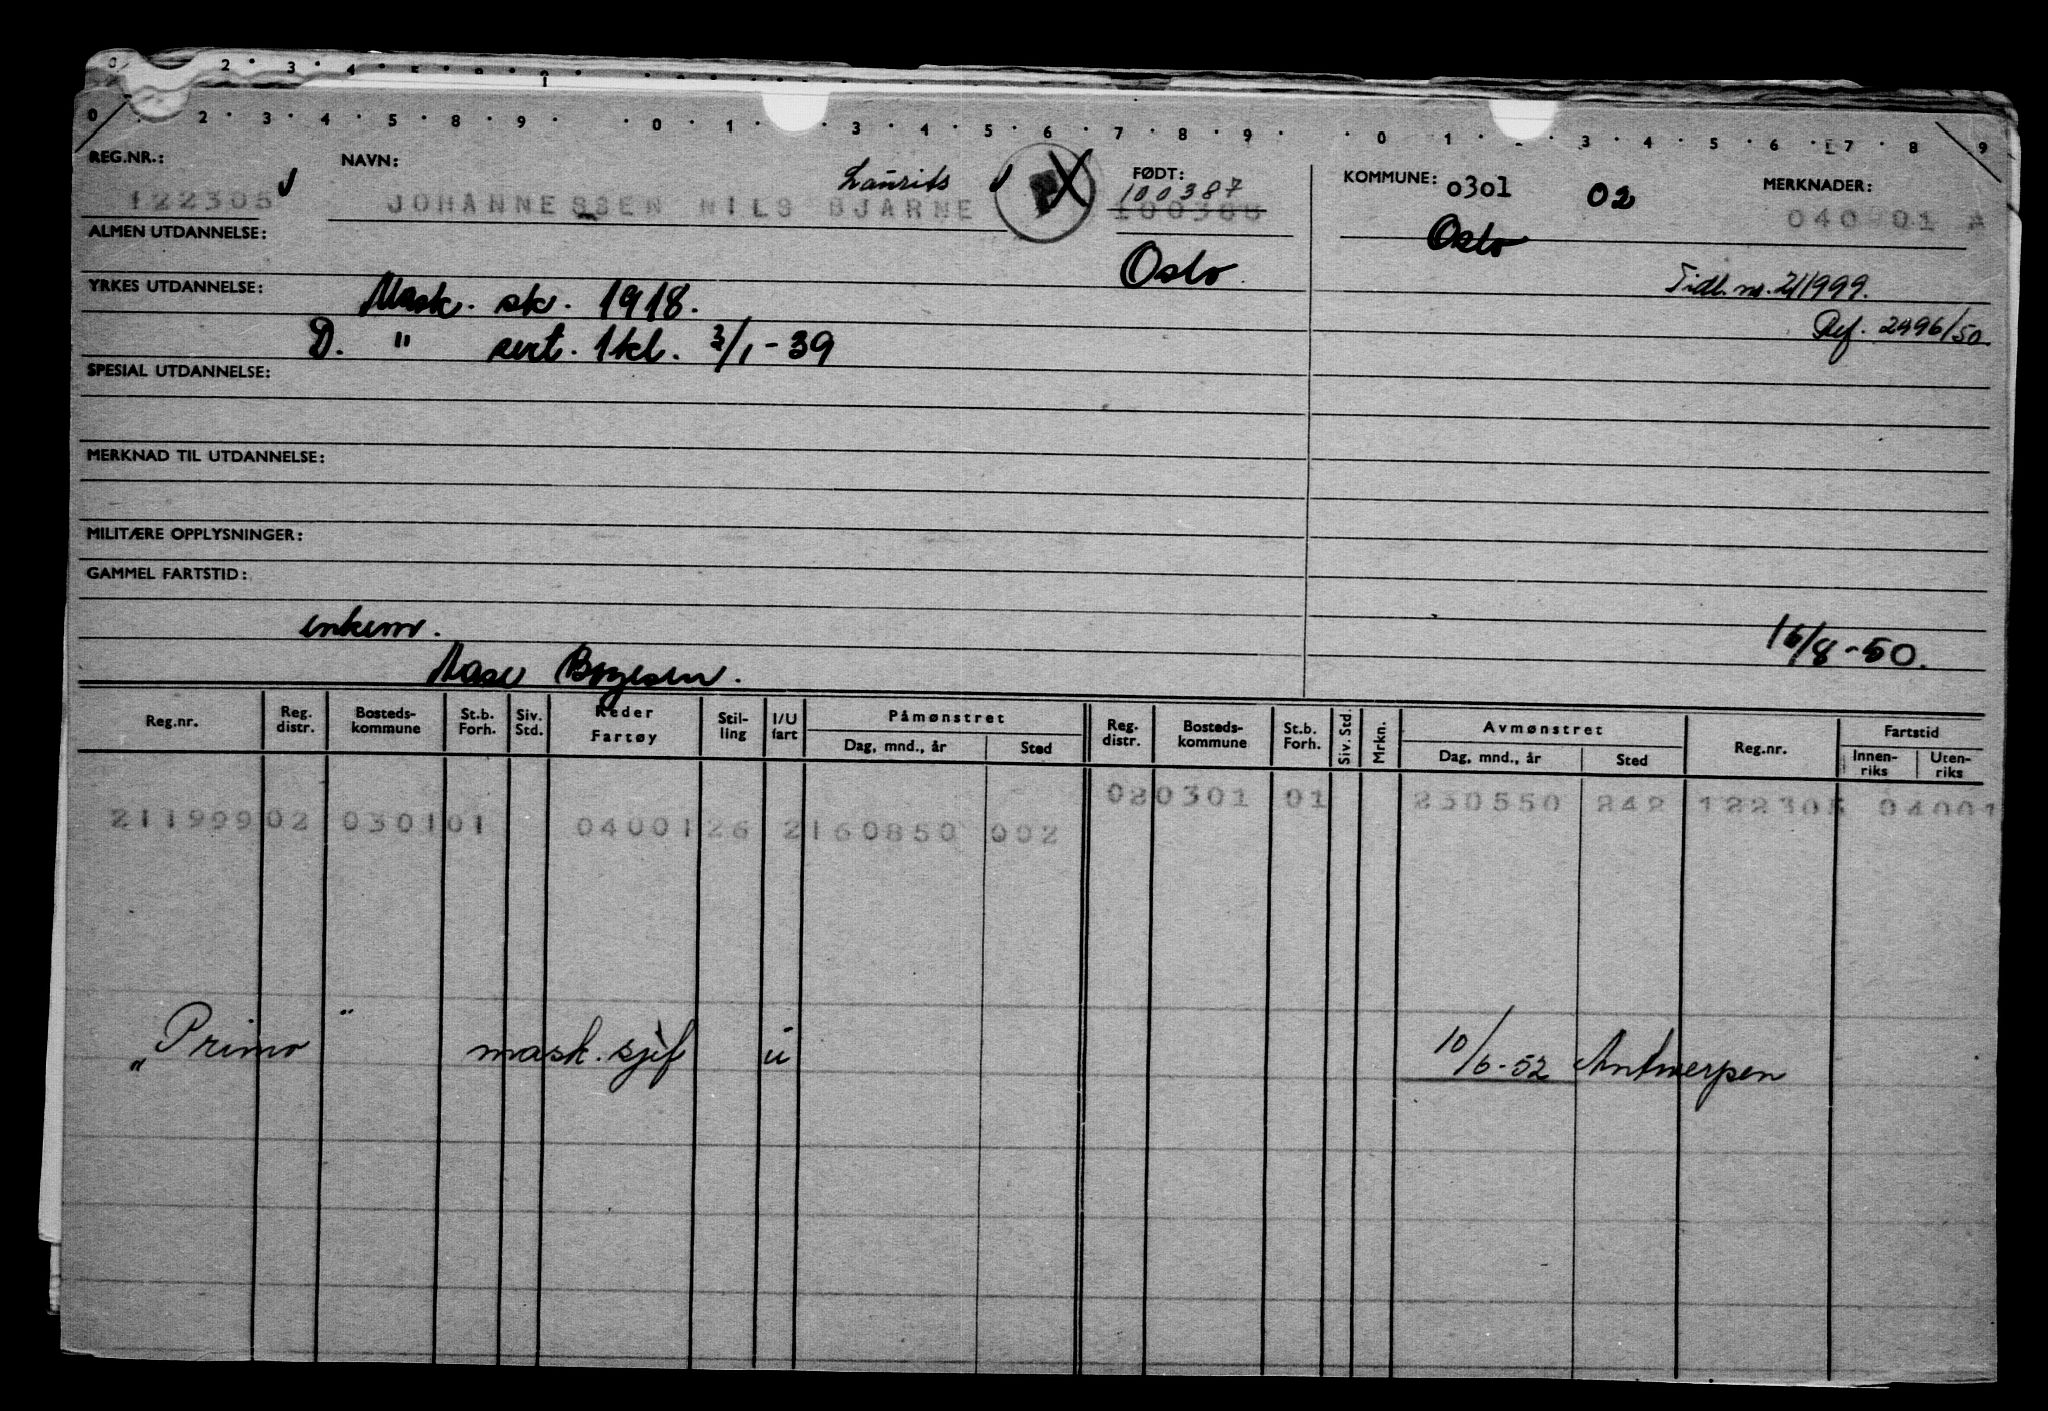 0 2 3 4 5 8 9 0 1 3 4 5 6 7 8 9 0 1 3 4 5 6 7 8 9
REG.NR.: NAVN: Laurits FØDT: 100387 KOMMUNE: 0301 02 MERKNADER:
122305 JOHANNESSEN NILS BJARNE 100388 Oslo 040 01 A
ALMEN UTDANNELSE: Oslo
YRKES UTDANNELSE: Mask. sk. 1918. Tidl. nr. 211999.
D. " sert. 1 kl. 3/1-39 Ref. 2496/50
SPESIAL UTDANNELSE:
MERKNAD TIL UTDANNELSE:
MILITÆRE OPPLYSNINGER:
GAMMEL FARTSTID:
enkem. 16/8-50.
Aase
Reg.nr. Reg. distr. Bosteds-kommune St.b. Forh. Siv. Std. Reder Fartøy Stil-ling I/U fart Påmønstret Dag, mnd., år Sted Reg. distr. Bosteds-kommune St.b. Forh. Siv. Std. Mrkn. Avmønstret Dag, mnd., år Sted Reg.nr. Fartstid Innen-riks Uten-riks
211999 02 0301 01 0400126 2 160850 002 02 0301 01 230550 242 122305 04001
"Primo" mask. sjef u 10/6-52 Antwerpen